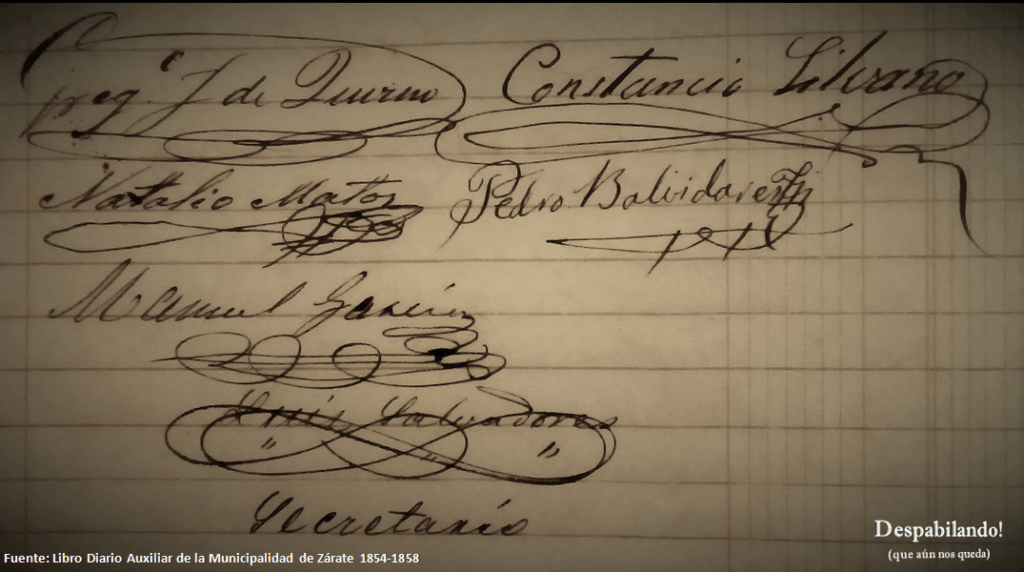 Greg. J de Quirno Constancio Silvano
Natalio Mattos Pedro Balvidares
Manuel García
Luis Salvadores
Secretario
Despabilando!
(que aún nos queda)
Fuente: Libro Diario Auxiliar de la Municipalidad de Zárate 1854-1858